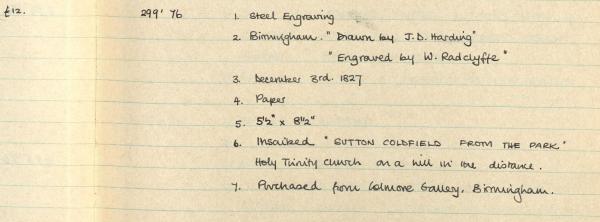 £12. 299' 76 1. Steel Engraving
2. Birmingham. "Drawn by J.D. Harding"
"Engraved by W. Radclyffe"
3. December 3rd. 1827
4. Paper
5. 5½" x 8½"
6. Inscribed "SUTTON COLDFIELD FROM THE PARK"
Holy Trinity Church on a hill in the distance.
7. Purchased from Colmore Gallery, Birmingham.